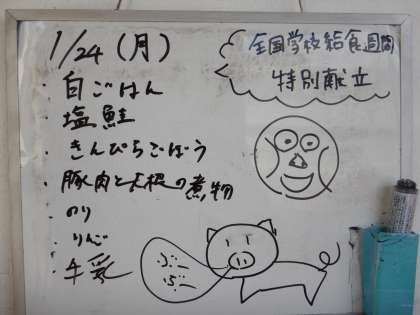 1/24(月)
全国学校給食週間
特別献立
・白ごはん
・塩鮭
・きんぴらごぼう
・豚肉と大根の煮物
・のり
・りんご
・牛乳
ぶー
ぶー